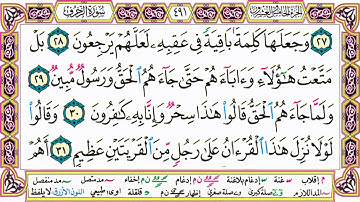 سورة الزخرف ٤٩١ الجزء الخامس والعشرون
٢٧ وَجَعَلَهَا كَلِمَةً بَاقِيَةً فِي عَقِبِهِ لَعَلَّهُمْ يَرْجِعُونَ ٢٨ بَلْ
مَتَّعْتُ هَٰؤُلَاءِ وَءَابَاءَهُمْ حَتَّىٰ جَاءَهُمُ الْحَقُّ وَرَسُولٌ مُّبِينٌ ٢٩
وَلَمَّا جَاءَهُمُ الْحَقُّ قَالُوا هَٰذَا سِحْرٌ وَإِنَّا بِهِ كَٰفِرُونَ ٣٠ وَقَالُوا
لَوْلَا نُزِّلَ هَٰذَا الْقُرْءَانُ عَلَىٰ رَجُلٍ مِّنَ الْقَرْيَتَيْنِ عَظِيمٍ ٣١ أَهُمْ